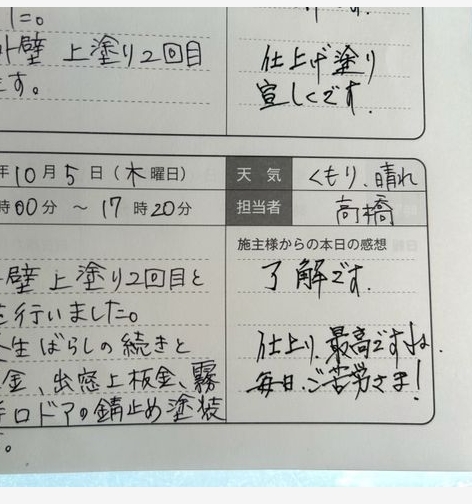 た。
外壁 上塗り2回目
ます。
仕上げ塗り
宜しくです.
年10月5日(木曜日)
天気
くもり、晴れ
時00分 ~ 17時20分
担当者
高橋
施主様からの本日の感想
壁 上塗り2回目と
を行いました。
生ばらしの続きと
金、出窓上板金、霧
ロドアの錆止め塗装
。
了解です.
仕上り.最高ですね.
毎日.ご苦労さま!